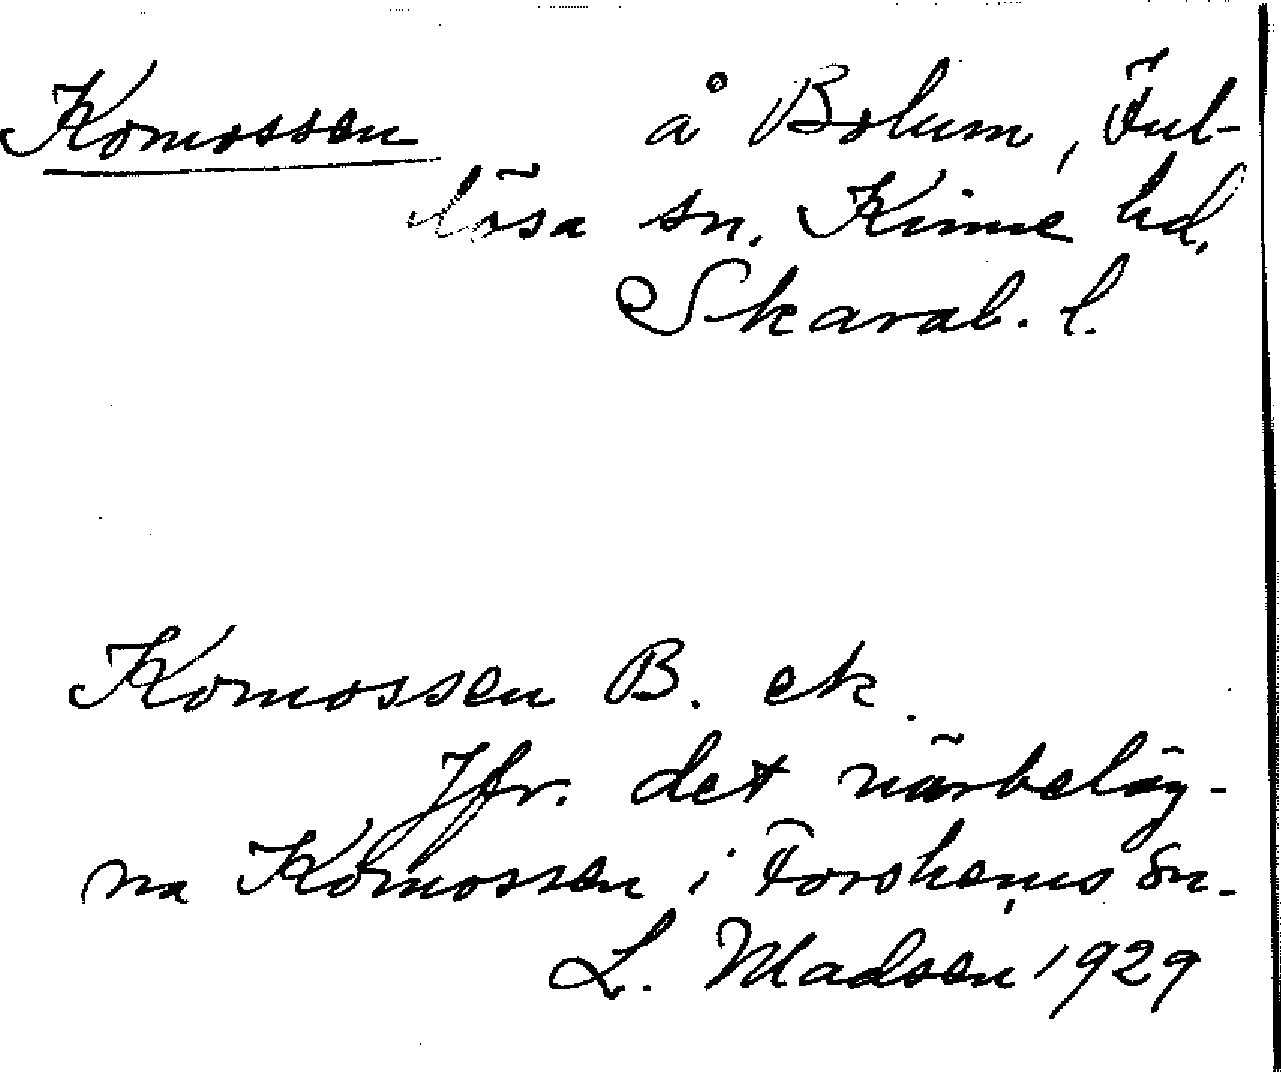 Komossen å Bolum, Ful-
lösa sn. Kinne hd.
Skarab. l.
Komossen B. ek.
Jfr. det närbeläg-
na Komossen i Forshems sn.
L. Madsen 1929